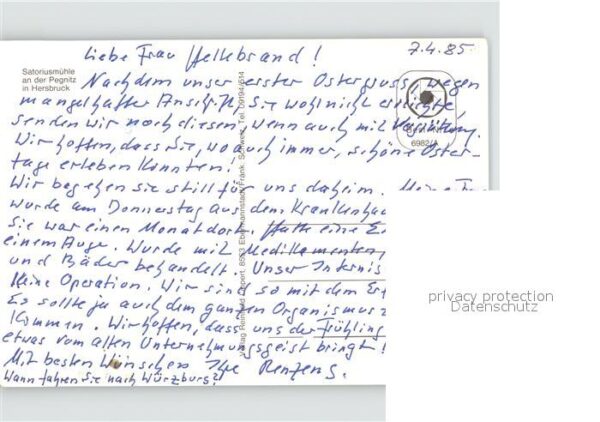 Satoriusmühle
an der Pegnitz
in Hersbruck
Liebe Frau Hellebrand! 7.4.85
Nachdem unser erster Ostergruss, wegen
mangelhafter Anschrift, Sie wohl nicht erreichte
senden wir noch diesen, wenn auch mit Verspätung.
Wir hoffen, dass Sie, wo auch immer, schöne Oster-
tage erleben konnten!
Wir begehen sie still für uns daheim. Meine
wurde am Donnerstag aus dem Krankenhau
Sie war einen Monat dort. Hatte eine
einem Auge. Wurde mit Medikamenten,
und Bäder behandelt. Unser Internis
Keine Operation. Wir sind so mit dem
Es sollte ja auch dem ganzen Organismus
kommen. Wir hoffen, dass uns der Frühling
etwas vom alten Unternehmungsgeist bringt!
Mit besten Wünschen Ihre Renzens.
Wann fahren Sie nach Würzburg?
6982/1
privacy protection
Datenschutz